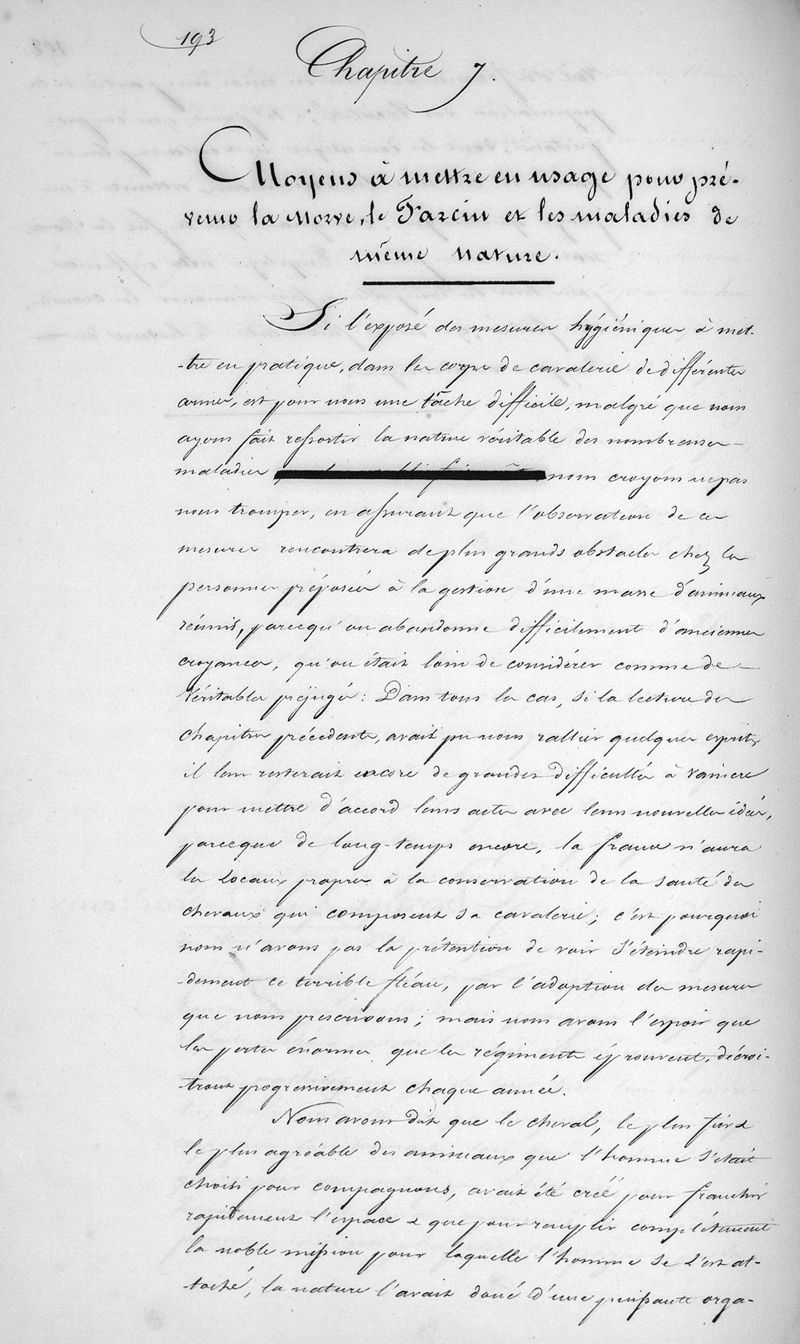 193
Chapitre 7.
Moyens à mettre en usage pour pré-
venir la Morve, le Farcin et les maladies de
même nature.
Si l'exposé des mesures hygiéniques à met-
-tre en pratique, dans les corps de cavalerie de différentes
armes, est pour nous une tâche difficile, malgré que nous
ayons fait ressortir la nature véritable des nombreuses
maladies nous croyons ne pas
nous tromper, en assurant que l'observation de ces
mesures rencontrera de plus grands obstacles chez les
personnes préposées à la gestion d'une masse d'animaux
réunis, parcequ'on abandonne difficilement d'anciennes
croyances, qu'on était loin de considérer comme de
véritables préjugés: Dans tous les cas, si la lecture des
chapitres précédents, avait pu nous rallier quelques esprits,
il leur resterait encore de grandes difficultés à vaincre
pour mettre d'accord leurs actes avec leurs nouvelles idées,
parceque de long-temps encore, la france n'aura
les locaux propres à la conservation de la santé des
chevaux qui composent sa cavalerie; c'est pourquoi
nous n'avons pas la prétention de voir s'éteindre rapi-
-dement ce terrible fléau, par l'adoption des mesures
que nous prescrivons; mais nous avons l'espoir que
les pertes énormes que les régiments éprouvent, décroi-
-tront progressivement chaque année.
Nous avons dit que le cheval, le plus fier &
le plus agréable des animaux que l'homme s'était
choisi pour compagnons, avait été créé pour franchir
rapidement l'espace & que pour remplir complètement
la noble mission pour laquelle l'homme se l'est at-
-taché, la nature l'avait doué d'une puissante orga-